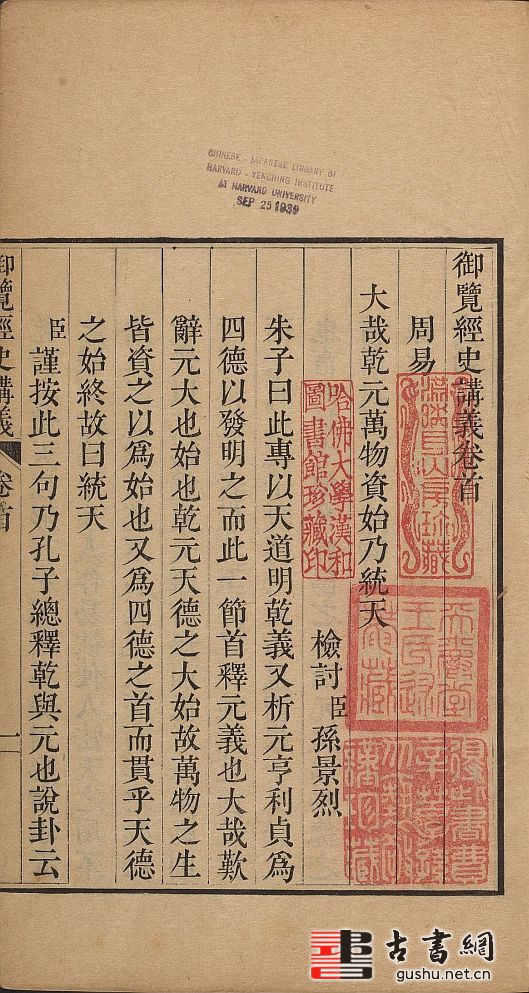 CHINESE - JAPANESE LIBRARY OF
HARVARD - YENCHING INSTITUTE
AT HARVARD UNIVERSITY
SEP 25 1939
御覽經史講義卷首
周易
大哉乾元萬物資始乃統天
檢討臣孫景烈
朱子曰此專以天道明乾義又析元亨利貞爲
四德以發明之而此一節首釋元義也大哉歎
辭元大也始也乾元天德之大始故萬物之生
皆資之以爲始也又爲四德之首而貫乎天德
之始終故曰統天
臣謹按此三句乃孔子總釋乾與元也說卦云
御覽經史講義
卷首
一
哈佛大學漢和
圖書館珍藏印
古書網
gushu.net.cn